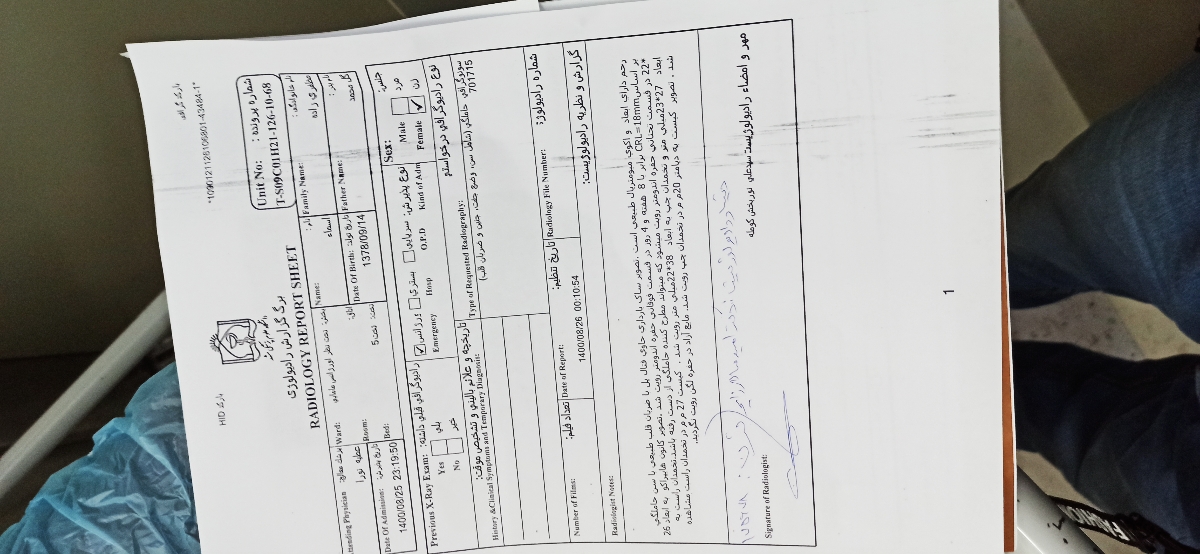 بارکد گرافی
*109012112810680​1-43484-1*
بارکد HID
برگ گزارش رادیولوژی
RADIOLOGY REPORT SHEET
Unit No: شماره پرونده :
T-S09C01H21-126-10-68
Attending Physician پزشک معالج:
عطیه نورا
Ward: بخش: تحت نظر اورژانس مامایی
Name: نام:
اسماء
Family Name: نام خانوادگی:
مظفری زاده
Date Of Admission: تاریخ پذیرش:
1400/08/25 23:19:50
Room: اتاق:
Bed: تخت: تخت5
Date Of Birth: تاریخ تولد:
1378/09/14
Father Name: نام پدر:
گل محمد
Previous X-Ray Exam: رادیوگرافی قبلی داشته:
Yes بلی
No خیر
اورژانس
Emergency
بستری
Hosp
سرپایی
O.P.D
نوع پذیرش:
Kind of Adm
Sex: جنس:
Male مرد
Female زن
تاریخچه و علائم بالینی و تشخیص موقت:
History &Clinical Symptoms and Temporary Diagnosis:
نوع رادیوگرافی درخواستی
Type of Requested Radiography:
سونوگرافی حاملگی (شامل سن، وضع جفت، جنین و ضربان قلب)
701715
Number of Films: تعداد فیلم:
Date of Report: تاریخ تنظیم:
1400/08/26 00:10:54
Radiology File Number: شماره رادیولوژی:
Radiologist Notes: گزارش و نظریه رادیولوژیست:
رحم دارای ابعاد و اکوی میومتریال طبیعی است .تصویر ساک بارداری حاوی فتال پل با ضربان قلب طبیعی با سن حاملگی
بر اساس CRL=18mm برابر با 8 هفته و 4 روز در قسمت فوقانی حفره اندومتر رویت شد .تصویر کانون هایپراکو به ابعاد 26
*22 در قسمت تحتانی حفره اندومتر رویت میشود که میتواند مطرح کننده حاملگی از دست رفته باشد.تخمدان راست به
ابعاد 27*23میلی متر و تخمدان چپ به ابعاد 38*22میلی متر رویت شد . کیست 27 م م در تخمدان راست مشاهده
شد . تصویر کیست به دیامتر 20م م در تخمدان چپ رویت شد. مایع آزاد در حفره لگن رویت نگردید.
Signature of Radiologist:
مهر و امضاء رادیولوژیست سیدعلی نوربخش کوطه
1
FASHION